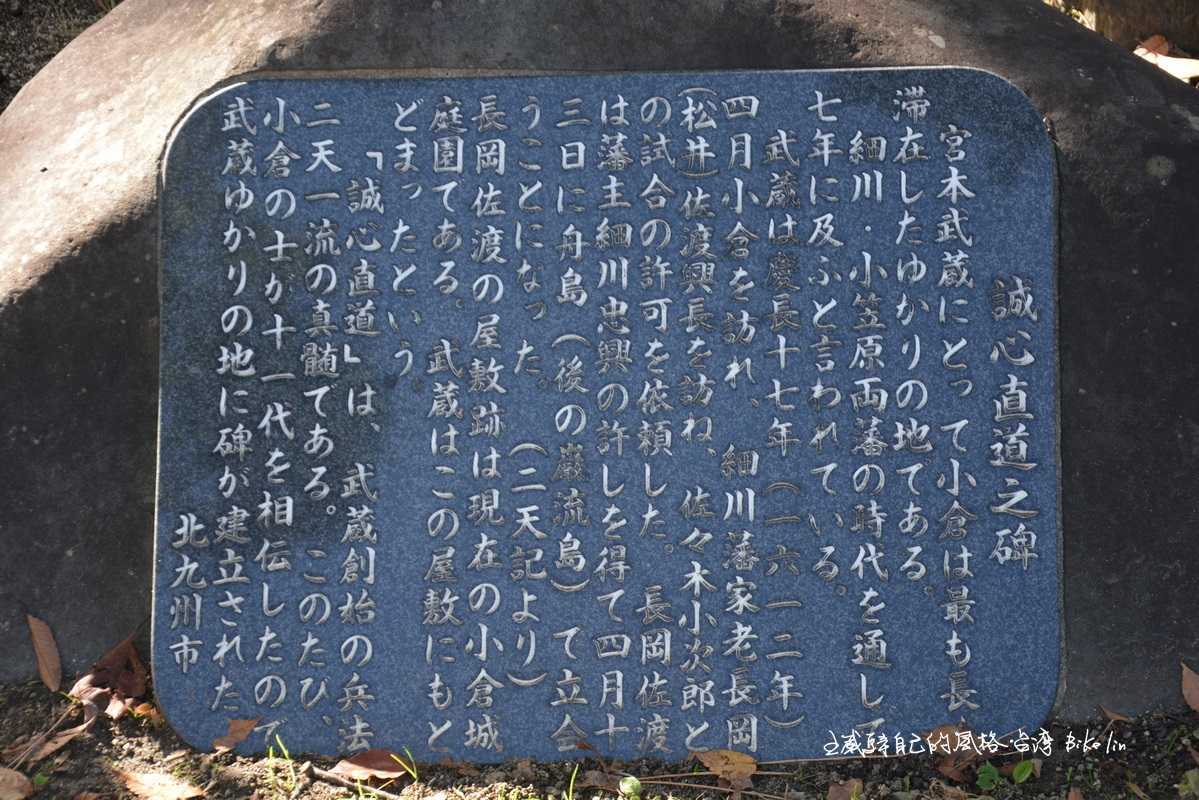 誠心直道之碑
宮本武蔵にとって小倉は最も長く
滞在したゆかりの地である。
細川・小笠原両藩の時代を通して
七年に及ぶと言われている。
武蔵は慶長十七年(一六一二年)
四月小倉を訪れ、細川藩家老長岡
(松井)佐渡興長を訪ね、佐々木小次郎と
の試合の許可を依頼した。長岡佐渡
は藩主細川忠興の許しを得て四月十
三日に舟島(後の巌流島)で立会
うことになった。(二天記より)
長岡佐渡の屋敷跡は現在の小倉城
庭園である。武蔵はこの屋敷にもと
どまったという。
「誠心直道」は、武蔵創始の兵法
二天一流の真髄である。このたび、
小倉の士が十一代を相伝したので
武蔵ゆかりの地に碑が建立された
北九州市
自己的風格 台湾 Bike lin